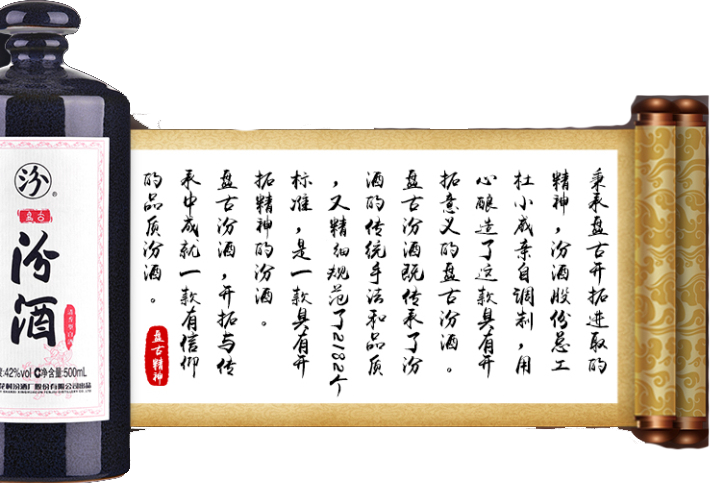 秉承盘古开拓进取的
精神,汾酒股份总工
杜小威亲自调制,用
心酿造了这款具有开
拓意义的盘古汾酒。
盘古汾酒既传承了汾
酒的传统手法和品质
,又精细规范了2182个
标准,是一款具有开
拓精神的汾酒。
盘古汾酒,开拓与传
承中成就一款有信仰
的品质汾酒。
盘古精神
汾
®
盘古
汾酒
清香型白酒
:42%vol 净含量:500mL
花村汾酒厂股份有限公司出品